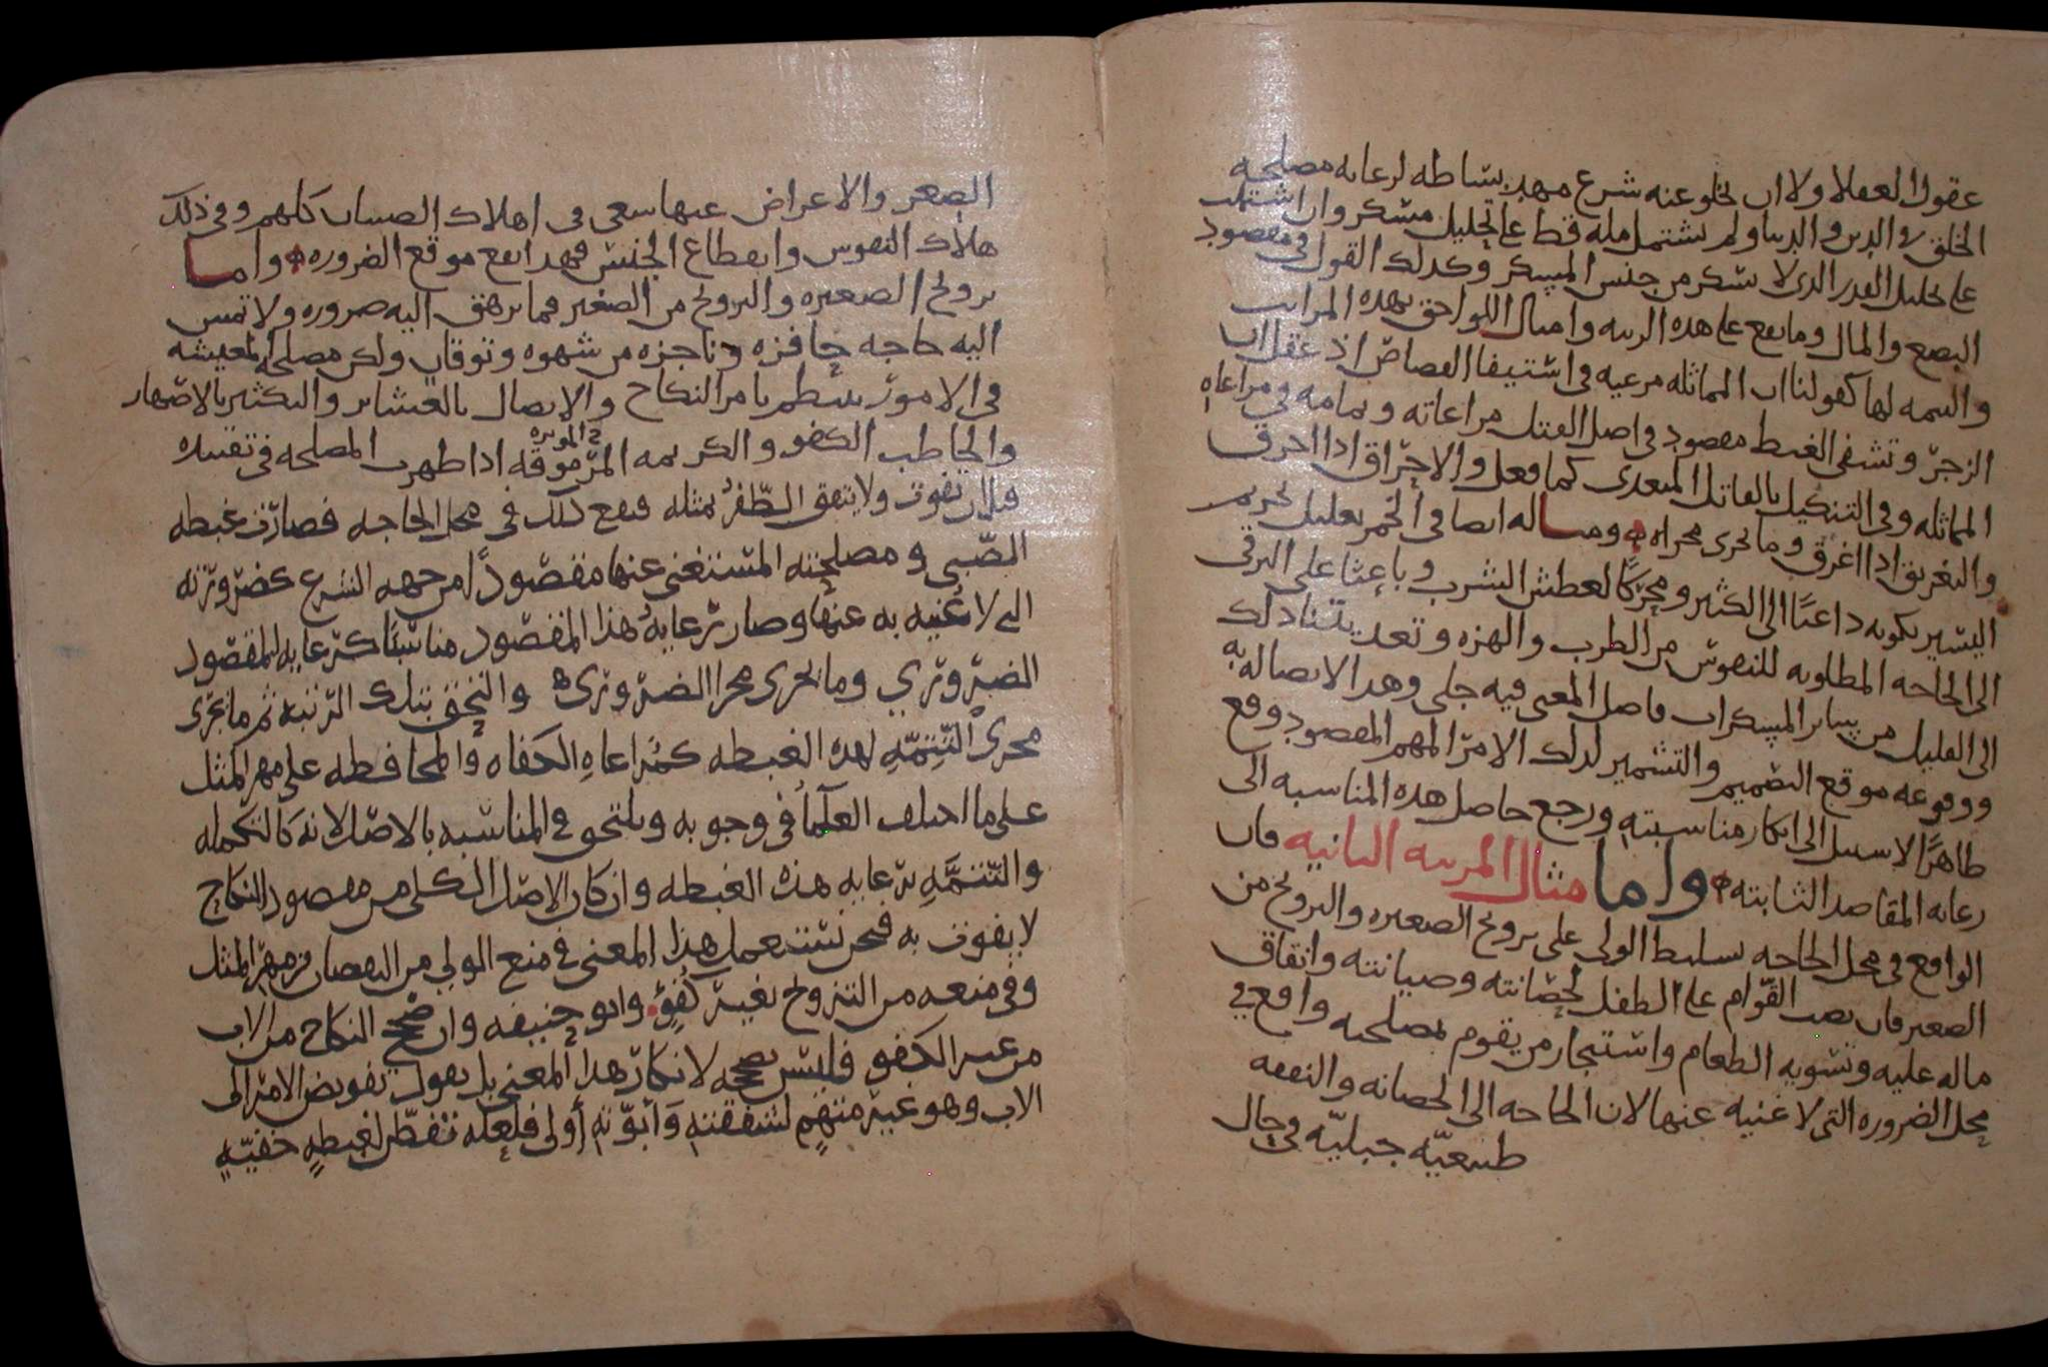 عقول العقلا ولا ان يخلو عنه شرع مهد بساطه لرعايه مصلحه
الخلق في الدين والدنيا ولم تشتمل مله قط على تحليل مسكر وان اشتملت
على تحليل القدر الذى لا يسكر من جنس المسكر وكذلك القول في مقصود
البضع والمال وما يقع على هذه الرتبه وامثال اللواحق بهذه المراتب
والتتمه لها كقولنا ان المماثله مرعيه في استيفا القصاص اذ عقل ان
الزجر وتشفى الغيظ مقصود في اصل القتل مراعاته وتمامه في مراعاه
المماثله وفي التنكيل بالقاتل المتعدى كما فعل والاحراق اذا احرق
والتغريق اذا اغرق وما يجرى مجراه ومثاله ايضا في الخمر تعليل تحريم
اليسير بكونه داعيا الى الكثير ومحركا لعطش الشرب وباعثا على الترقى
الى الحاجه المطلوبه للنفوس من الطرب والهزه وتعد يتنا ذلك
الى القليل من سائر المسكرات فاصل المعنى فيه جلى وهذا لاتصاله به
ووقوعه موقع التضميم والتشمير لذلك الامر المهم المقصود وقع
ظاهرًا لا سبيل الى انكار مناسبته ورجع حاصل هذه المناسبه الى
رعايه المقاصد الثابته واما مثال المرتبه الثانيه فان
الواقع في محل الحاجه تسليط الولى على تزويج الصغيره والتزويج من
الصغير فان نصب القوام على الطفل لحضانته وصيانته وانفاق
ماله عليه وتسويه الطعام واستيجار من يقوم بمصلحته واقع في
محل الضروره التي لا غنيه عنها لان الحاجه الى الحضانه والنفقه
طبيعيّه جبليّه في حال
الصغر والاعراض عنها سعى في اهلاك الصبيان كلهم وفي ذلك
هلاك النفوس وانقطاع الجنس فهذا يقع موقع الضروره واما
تزويج الصغيره والتزويج من الصغير فما ترهق اليه ضروره ولا تمس
اليه حاجه حافزه وناجزه من شهوه وتوقان ولكن مصلحه المعيشه
في الامور تنتظم بامر النكاح والاتصال بالعشاير والتكثير بالاصهار
والخاطب الكفو والكريمه المرموقه اذا ظهرت المصلحه في تقييده
فلان يفوت ولا يتفق الظفر بمثله فيقع ذلك في محل الحاجه فصارت غبطه
الصّبي ومصلحته المستغنى عنها مقصودًا من جهه الشرع كضرورته
التي لا غُنيه به عنها وصار رعايه هذا المقصود مناسبًا كرعايه المقصود
الضروري وما يجرى مجرا الضرورى والتحق بتلك الرتبه ثم ما يجرى
مجرى التتمّهِ لهذه الغبطه كمُراعاهِ الكفاه والمحافظه على مهر المثل
على ما اختلف العلَما في وجوبه ويلتحق في المناسبه بالاصل لانه كالتكمله
والتتمَّهِ برعايه هذه الغبطه وان كان الاصل الكلى من مقصود النكاح
لا يفوت به فنحن نستعمل هذا المعنى في منع الولي من النقصان من مهر المثل
وفي منعه من التزويج بغير كفؤ وابو حنيفه وان صحح النكاح من الاب
من غير الكفو فليس يصححه لانكار هذا المعنى بل يقول تفويض الامر الى
الاب وهو غير متهمٍ لشفقته وابوّته أولى فلعله تفطّن لغبطهٍ خفيّهٍ